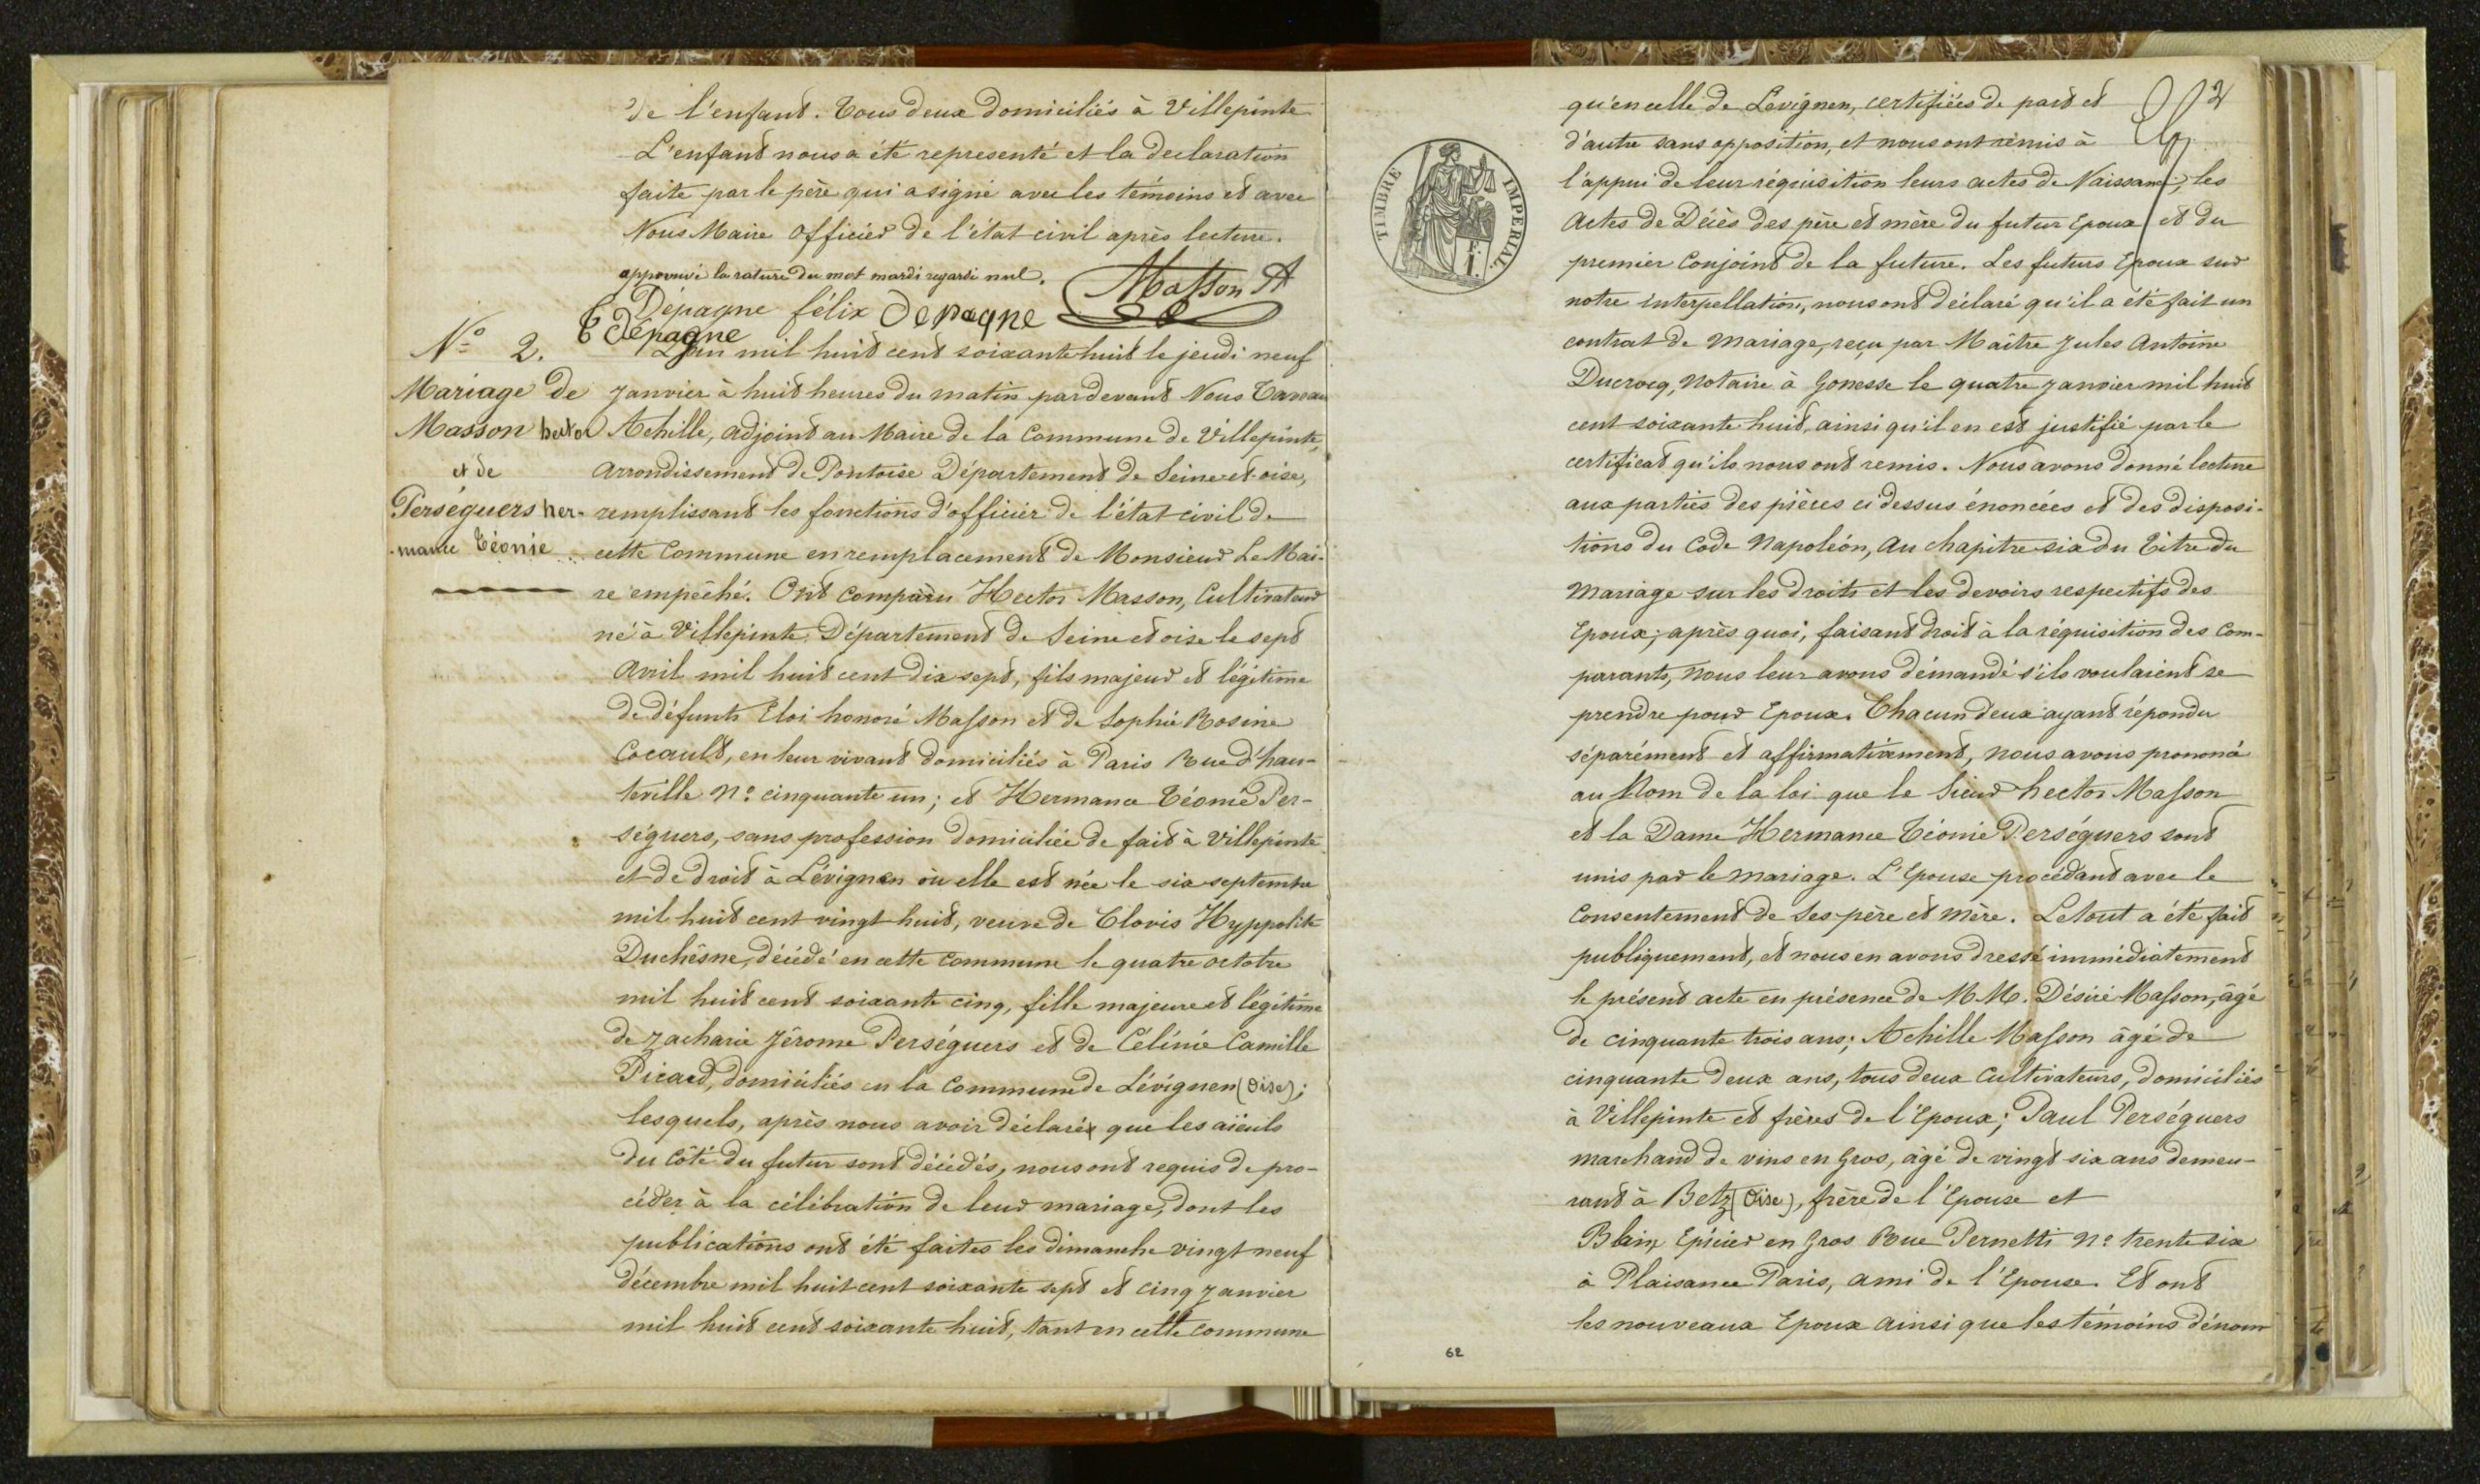 de l'enfant. Tous deux domiciliés à Villepinte
L'enfant nous a été representé et la declaration
faite par le père qui a signé avec les témoins et avec
Nous Maire officier de l'état civil après lecture.
approuvé la rature du mot mardi regardé nul.
Masson A
Dépagne félix Depagne
Dépagne
N° 2.
Mariage de
Masson hector
et de
Perséguers her-
-mance Léonie
L'an mil huit cent soixante huit le jeudi neuf
Janvier à huit heures du matin pardevant Nous
Achille, adjoint au Maire de la Commune de Villepinte,
arrondissement de Pontoise Département de Seine et oise,
remplissant les fonctions d'officier de l'état civil de
cette Commune en remplacement de Monsieur Le Mai-
re empêché. Ont comparu Hector Masson, Cultivateur
né à Villepinte Département de Seine et oise le sept
avril mil huit cent dix sept, fils majeur et légitime
de défunts Eloi honoré Masson et de Sophie Rosine
Cocault, en leur vivant domiciliés à Paris Rue d'hau-
teville N° cinquante un; et Hermance Léonie Per-
séguers, sans profession domiciliée de fait à Villepinte
et de droit à Lévignen où elle est née le six septembre
mil huit cent vingt huit, veuve de Clovis Hyppolite
Duchêsne, décédé en cette commune le quatre octobre
mil huit cent soixante cinq, fille majeure et légitime
de Zacharie Jérome Perséguers et de Célinie Camille
Picard, domiciliés en la Commune de Lévignen (oise);
lesquels, après nous avoir déclaré que les aïeuls
du côté du futur sont décédés, nous ont requis de pro-
céder à la célébration de leur mariage, dont les
publications ont été faites les dimanche vingt neuf
décembre mil huit cent soixante sept et cinq Janvier
mil huit cent soixante huit, tant en cette commune
2
TIMBRE IMPERIAL.
qu'en celle de Levignen, certifiées de part et
d'autre sans opposition, et nous ont remis à
l'appui de leur réquisition leurs actes de Naissance, les
actes de Décès des père et mère du futur Epoux et du
premier Conjoint de la future. Les futurs Epoux sur
notre interpellation, nous ont déclaré qu'il a été fait un
contrat de mariage, reçu par Maître Jules Antoine
Ducrocq, Notaire à Gonesse le quatre Janvier mil huit
cent soixante huit, ainsi qu'il en est justifié par le
certificat qu'ils nous ont remis. Nous avons donné lecture
aux parties des pièces ci dessus énoncées et des disposi-
tions du Code Napoléon, au chapitre six du Titre du
Mariage sur les droits et les devoirs respectifs des
Epoux; après quoi, faisant droit à la réquisition des Com-
parants, nous leur avons démandé s'ils voulaient se
prendre pour Epoux. Chacun deux ayant répondu
séparément et affirmativement, nous avons prononcé
au Nom de la loi que le Sieur hector Masson
et la Dame Hermance Léonie Perséguers sont
unis par le mariage. L'Epouse procédant avec le
Consentement de ses père et mère. Le tout a été fait
publiquement, et nous en avons dressé immédiatement
le présent acte en présence de MM. Désiré Masson, âgé
de cinquante trois ans; Achille Masson âgé de
cinquante deux ans, tous deux Cultivateurs, domiciliés
à Villepinte et frères de l'Epoux; Paul Perséguers
marchand de vins en Gros, âgé de vingt six ans demeu-
rant à Betz (Oise), frère de l'Epouse et
Blain, Epicier en Gros Rue Pernetti N° trente six
à Plaisance Paris, ami de l'Epouse. Et ont
les nouveaux Epoux ainsi que les témoins dénom
62